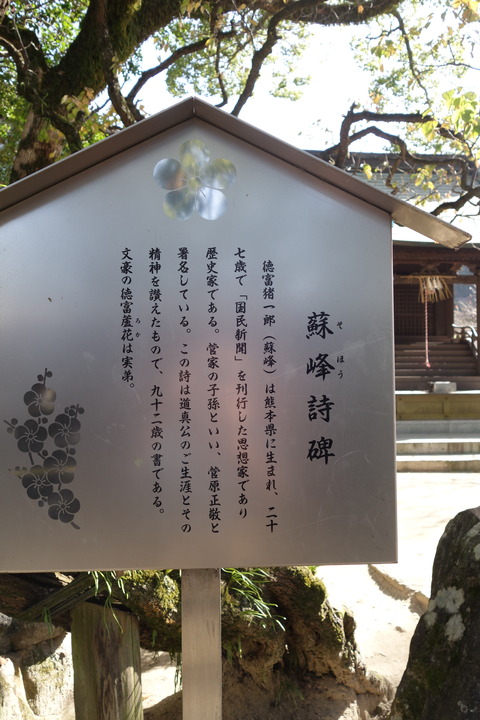 蘇峰詩碑
そほう
徳富猪一郎（蘇峰）は熊本県に生まれ、二十
七歳で「国民新聞」を刊行した思想家であり
歴史家である。菅家の子孫といい、菅原正敬と
署名している。この詩は道真公のご生涯とその
精神を讃えたもので、九十二歳の書である。
文豪の徳富蘆花は実弟。
ろか